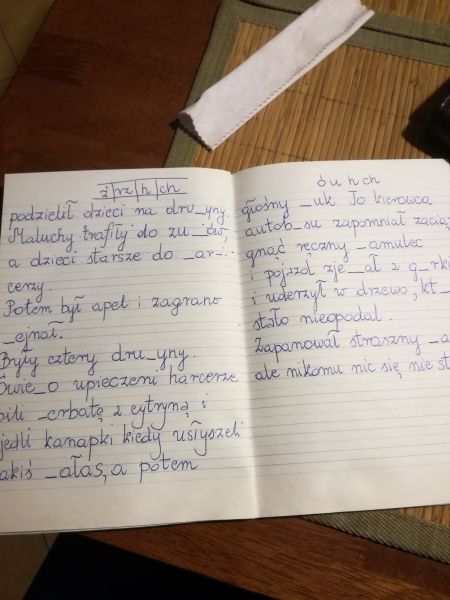 ż|rz|h|ch
podzielił dzieci na dru_yny.
Maluchy trafiły do zu_ów,
a dzieci starsze do _ar-
cerzy.
Potem był apel i zagrano
_ejnał.
Były cztery dru_yny.
Świe_o upieczeni harcerze
pili _erbatę z cytryną i
jedli kanapki kiedy usłyszeli
akiś _ałas, a potem
ó u h ch
głośny _uk To kierowca
autob_su zapomniał zacią
gnąć ręczny _amulec
i pojazd zje_ał z g_rki
i uderzył w drzewo, kt_
stało nieopodal.
Zapanował straszny _a
ale nikomu nic się nie st